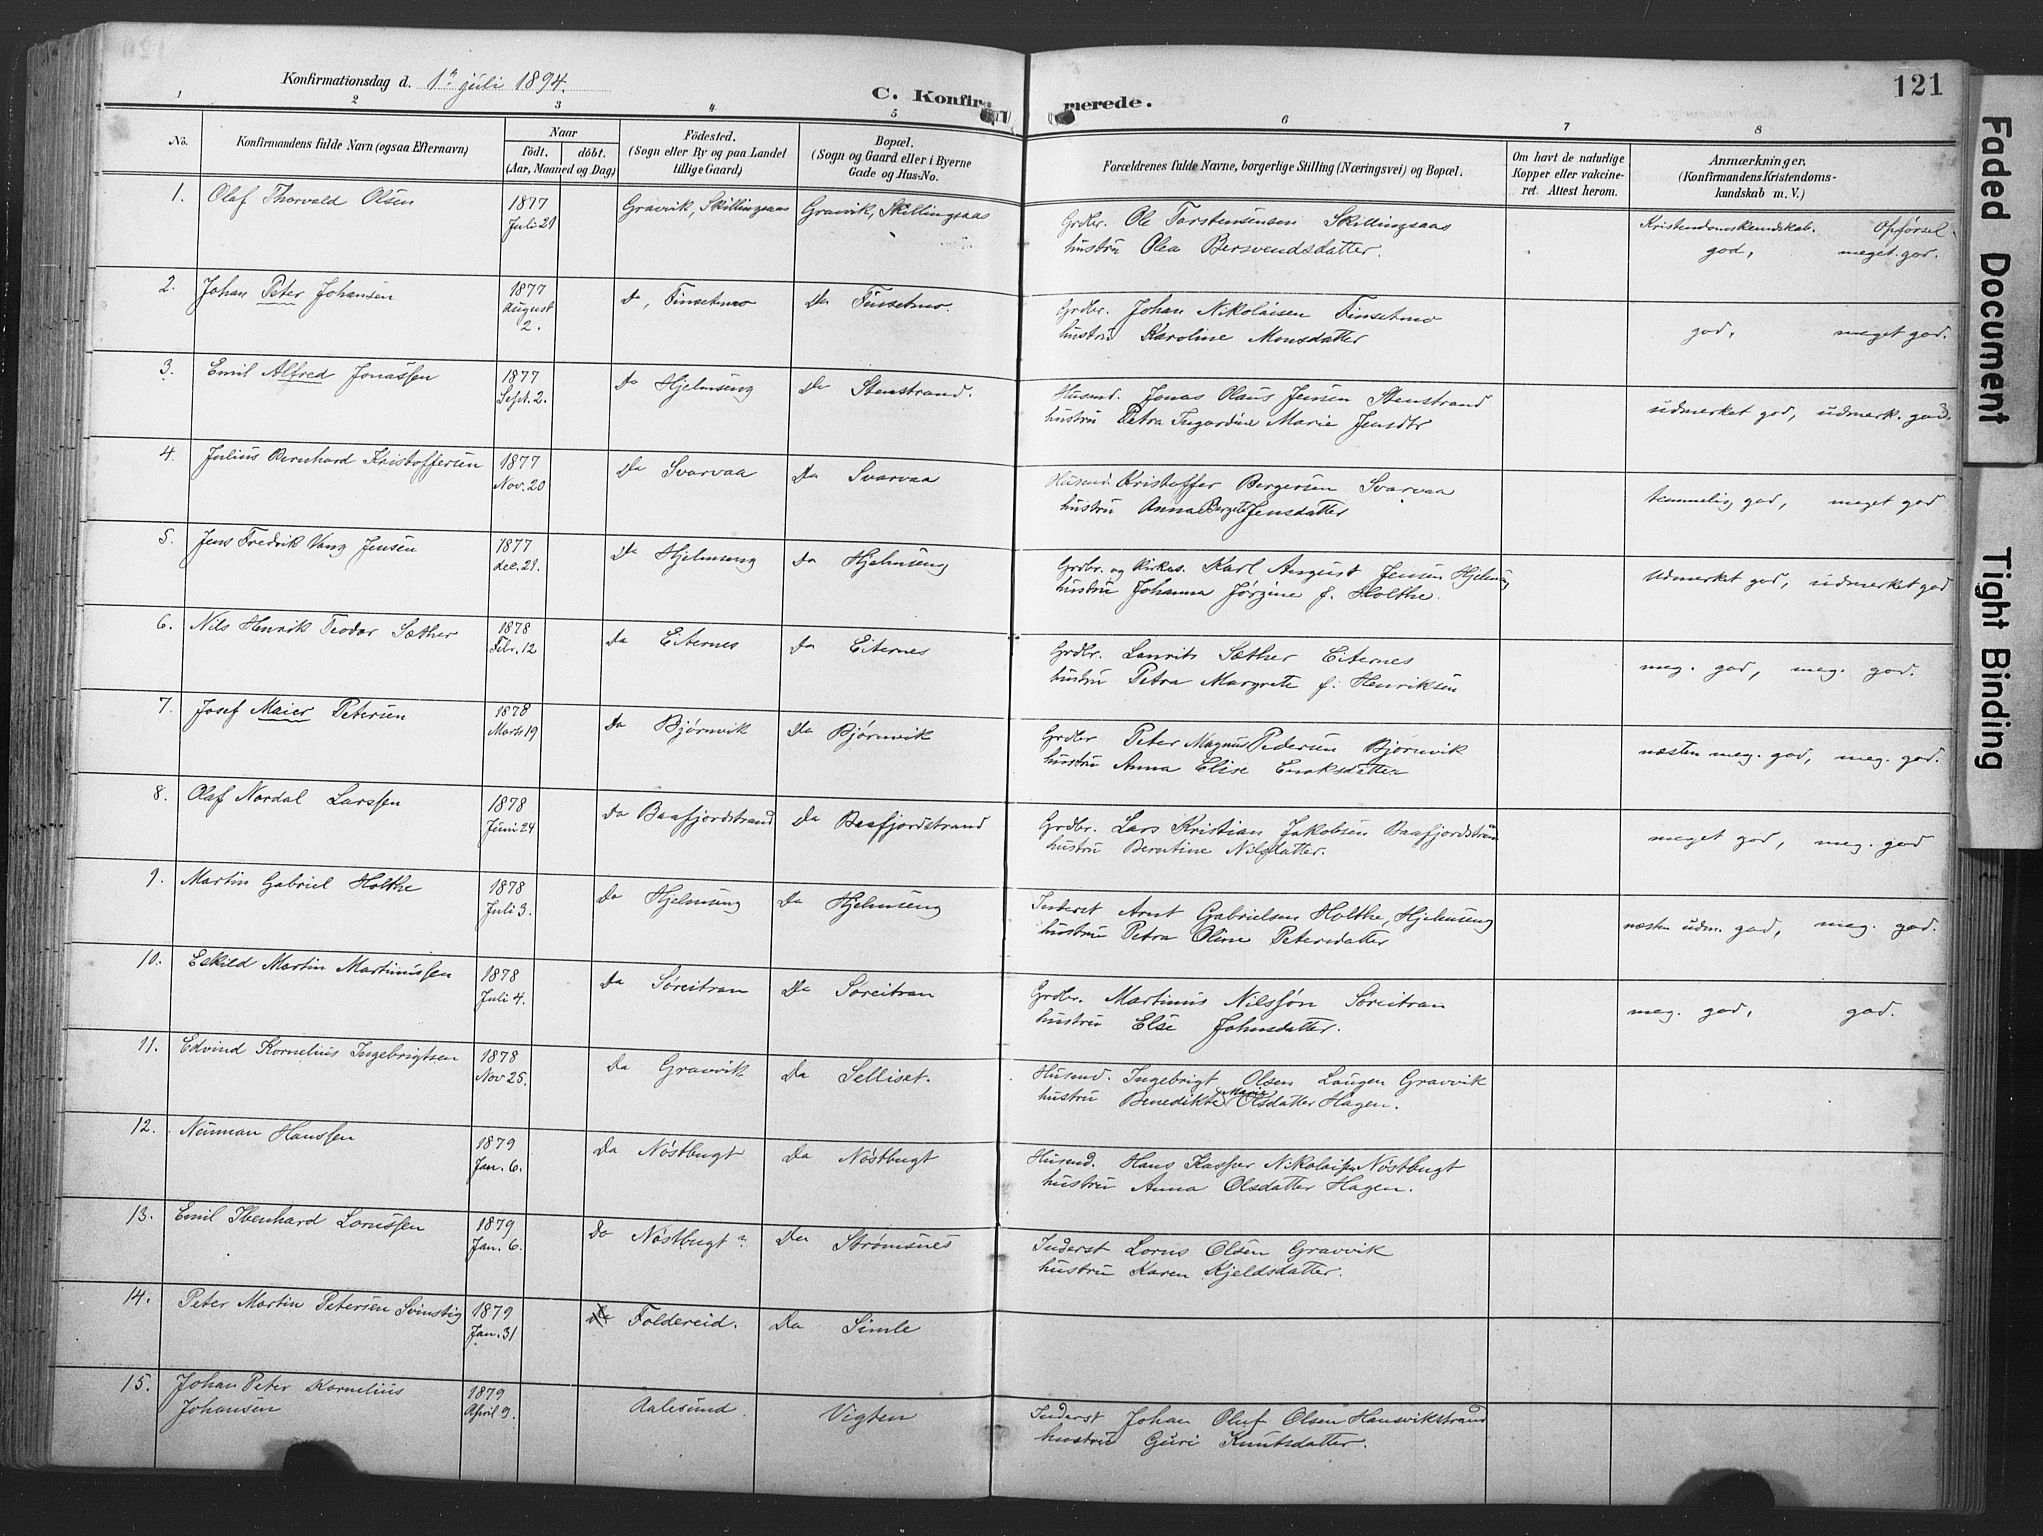 121
Konfirmationsdag d. 1ste juli 1894.
C. Konfirmerede.
1 2 3 4 5 6 7 8
No. Konfirmandens fulde Navn (ogsaa Efternavn) Naar födt. döbt. (Aar, Maaned og Dag) Födested. (Sogn eller By og paa Landet tillige Gaard) Bopæl. (Sogn og Gaard eller i Byerne Gade og Hus-No. Forældrenes fulde Navne, borgerlige Stilling (Næringsvei) og Bopæl. Om havt de naturlige Kopper eller vakcineret. Attest herom. Anmærkninger. (Konfirmandens Kristendomskundskab m. V.)
1. Olaf Thorvald Olsen 1877 Juli 21 Gravvik, Skillingsaas Gravvik, Skillingsaas Grdbr. Ole Torstensensen Skillingsaas Kristendomskundskab. Opførsel.
hustru Olea Bersvendsdatter. god, meget god.
2. Johan Peter Johansen 1877 August 2. Do, Finsetmo Do Finsetmo. Grdbr. Johan Nikolaisen Finsetmo
hustru Karoline Monsdatter god, meget god.
3. Emil Alfred Jonassen 1877 Sept. 2. Do Hjelmseng Do Stenstrand. Husmd. Jonas Olaus Jensen Stenstrand
hustru Petra Ingardine Marie Jensdtr udmerket god, udmerk. god.
4. Julius Bernhard Kristoffersen 1877 Nov. 20 Do Svarvaa Do Svarvaa Husmd. Kristoffer Bergersen Svarvaa
hustru Anna Bergete Jensdatter temmelig god, meget god
5. Jens Fredrik Vang Jensen 1877 dec. 21. Do Hjelmseng Do Hjelmseng Grdbr. og Kirkes. Karl August Jensen Hjelmseng
hustru Johanna Jørgine f. Holthe. Udmerket god, udmerket god
6. Nils Henrik Teodor Sæther 1878 Febr. 12 Do Eiternes Do Eiternes Grdbr. Laurits Sæther Eiternes
hustru Petra Margrete f. Henriksen meg. god, meg. god.
7. Josef Maier Petersen 1878 Marts 19 Do Bjørnvik Do Bjørnvik Grdbr Peter Magnus Pedersen Bjørnvik
hustru Anna Elise Enoksdatter næsten meg. god, meg. god.
8. Olaf Nordal Larssen 1878 Juni 24 Do Baafjordstrand Do Baafjordstrand Grdbr. Lars Kristian Jakobsen Baafjordstran
hustru Berntine Nilsdatter. meget god, meg. god
9. Martin Gabriel Holthe 1878 Juli 3. Do Hjelmseng Do Hjelmseng Inderst Arnt Gabrielsen Holthe, Hjelmseng
hustru Petra Oline Petersdatter næsten udm. god, meg. god.
10. Eskild Martin Martinussen 1878 Juli 4. Do Søreitran Do Søreitran Grdbr. Martinus Nilssøn Søreitran
hustru Else Johnsdatter. meg. god, god.
11. Edvind Kornelius Ingebrigtsen 1878 Nov 25. Do Gravvik Do Selliset. Husmd. Ingebrigt Olsen Laugen Gravvik
hustru Benedikte Marie Olsdatter Hagen.
12. Neuman Hanssen 1879 Jan. 6. Do Nøstbugt Do Nøstbugt Husmd. Hans Kasper Nikolaisen Nøstbugt
hustru Anna Olsdatter Hagen.
13. Emil Ibenhard Lornssen 1879 Jan. 6. Do Nøstbugt ? Do Strømsnes Inderst Lorns Olsen Gravvik
hustru Karen Kjeldsdatter.
14. Peter Martin Petersen Svinstig 1879 Jan. 31 Foldereid. Do Simle
15. Johan Peter Kornelius 1879 April 9. Aalesund Vigten Inderst Johan Oluf Olsen Hansvikstrand
Johansen hustru Guri Knutsdatter.
Faded Document
Tight Binding